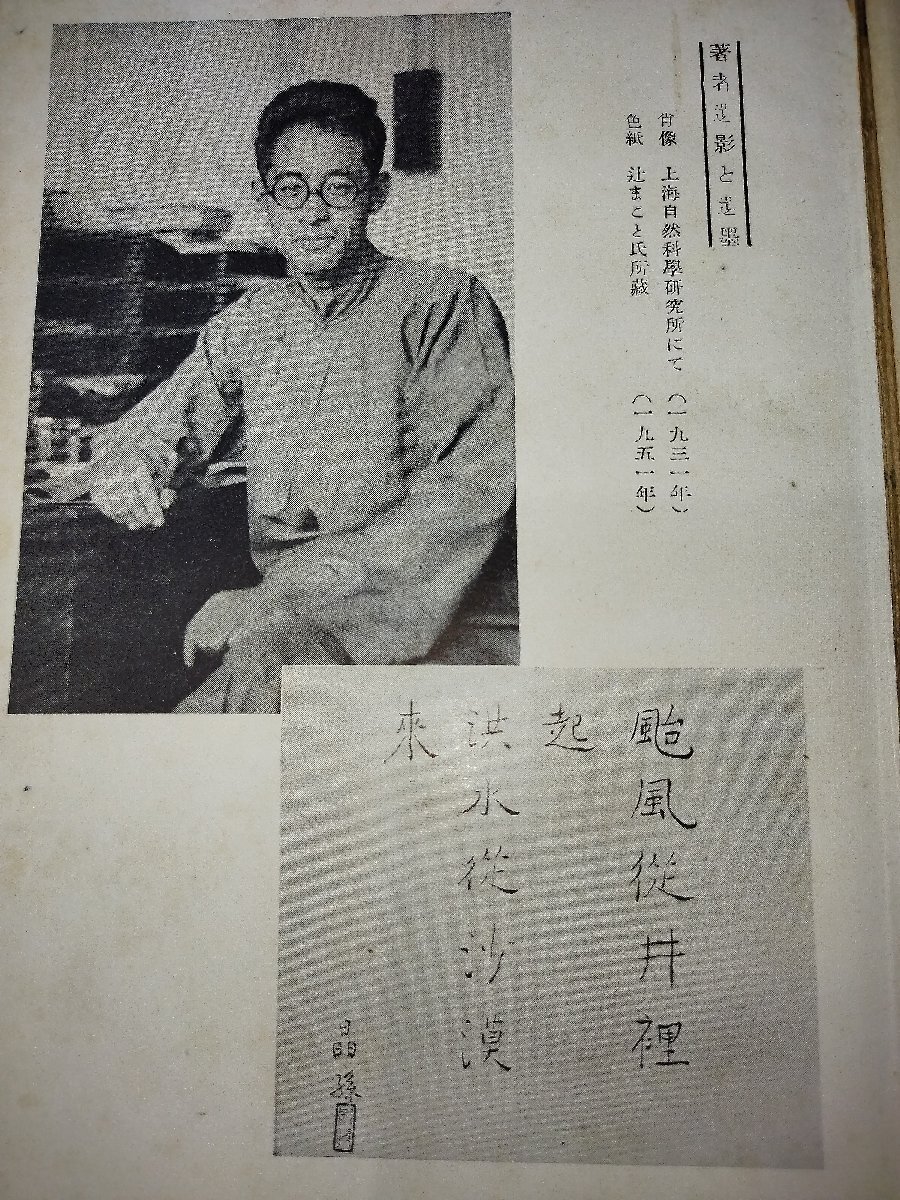 著者遺影と遺墨
肖像 上海自然科學硏究所にて (一九三一年)
色紙 辻まこと氏所藏 (一九五一年)
颱風從井裡
起
洪水從沙漠
來
晶孫